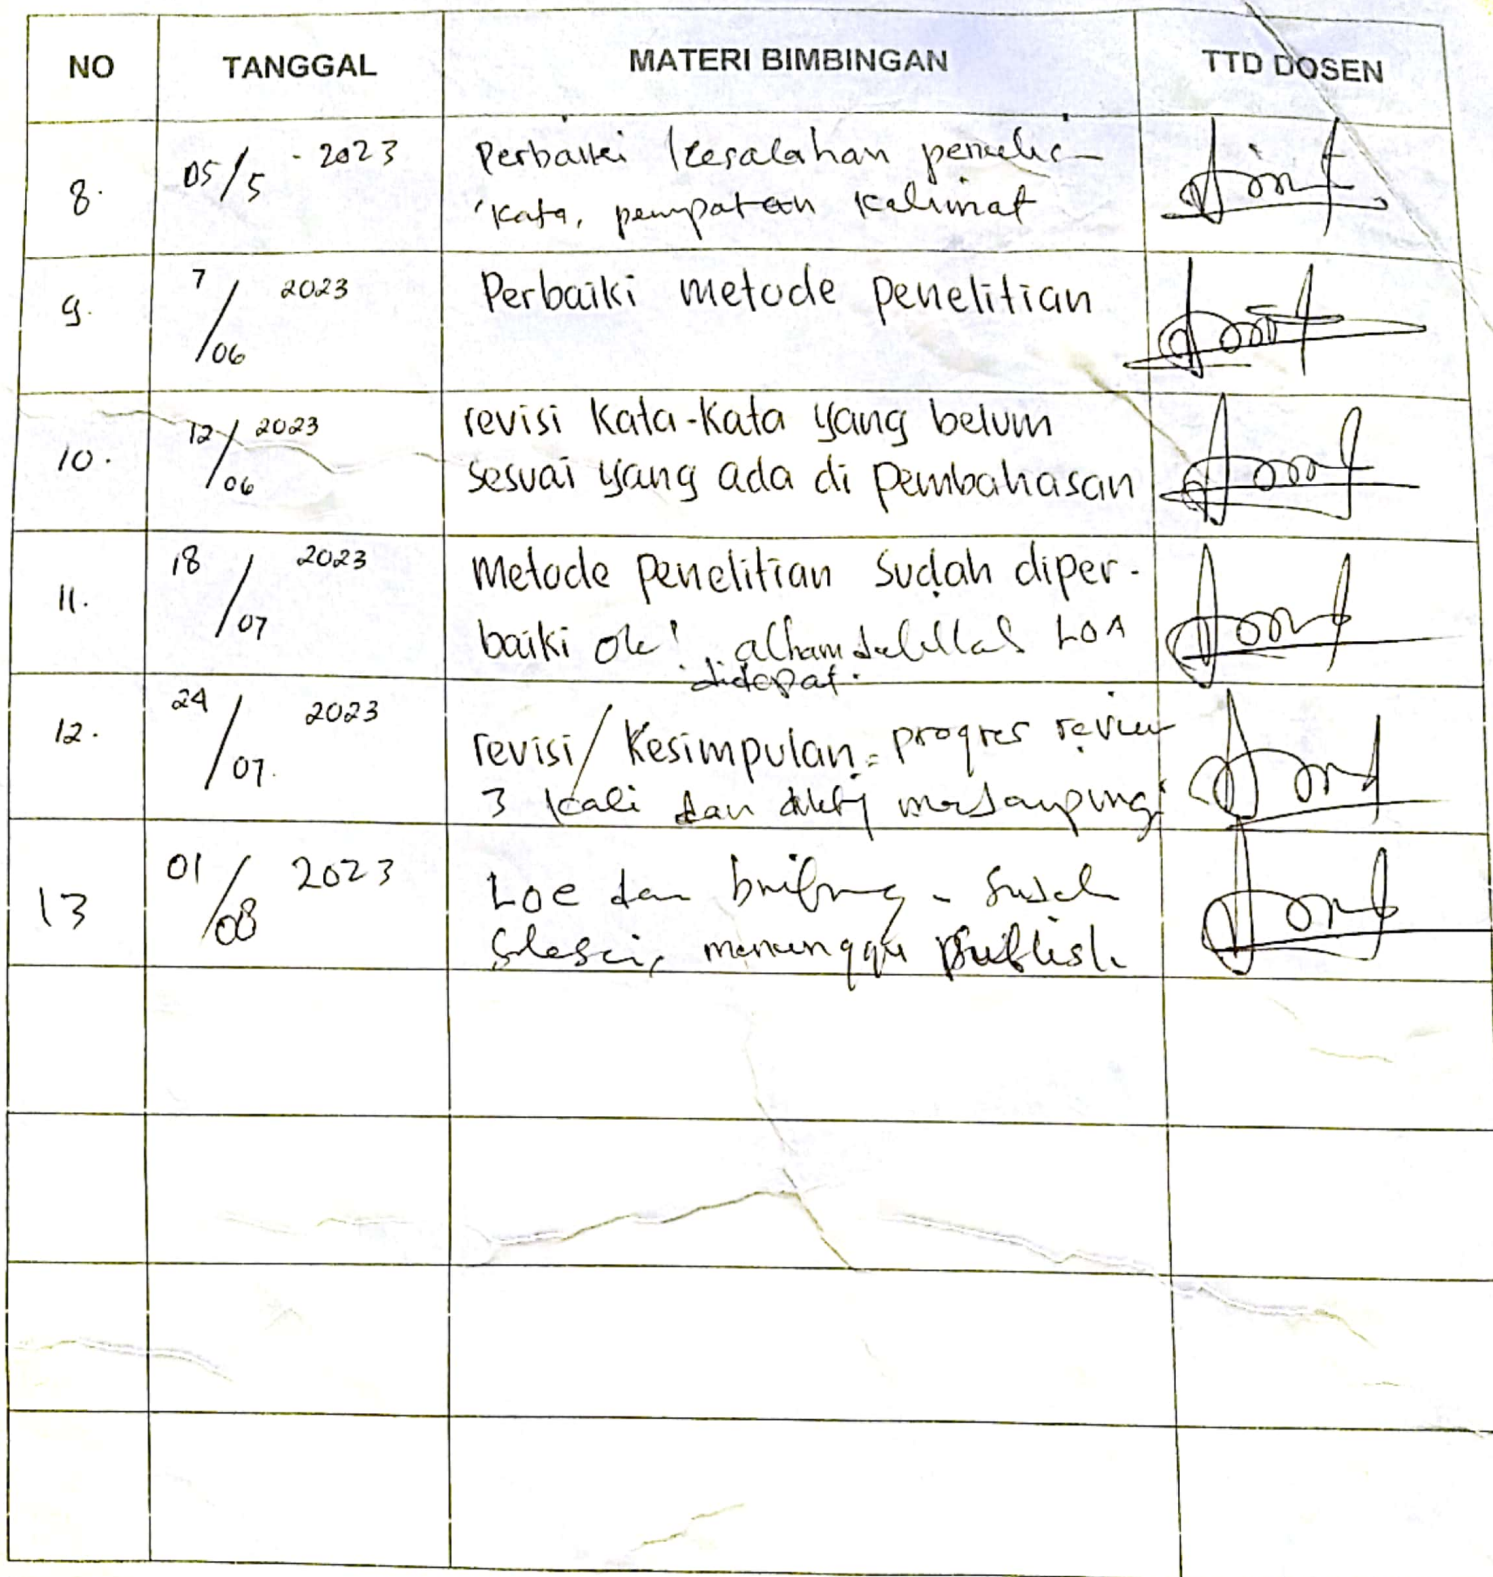 NO TANGGAL MATERI BIMBINGAN TTD DOSEN
8. 05/5 - 2023 Perbaiki kesalahan penulis-
kata, penempatan kalimat
9. 7/06 2023 Perbaiki metode penelitian
10. 12/06 2023 revisi kata-kata yang belum
sesuai yang ada di pembahasan
11. 18/07 2023 Metode penelitian sudah diper-
baiki ok! alhamdulillah LOA
didapat.
12. 24/07. 2023 revisi/Kesimpulan progres review
3 kali dan
13 01/08 2023 LOE dan
selesai, menunggu publish